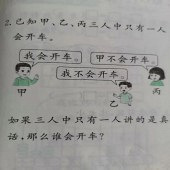 2.已知甲、乙、丙三人中只有一人
会开车。
我会开车。
甲不会开车。
我不会开车。
甲
乙
丙
如果三人中只有一人讲的是真
话,那么谁会开车?